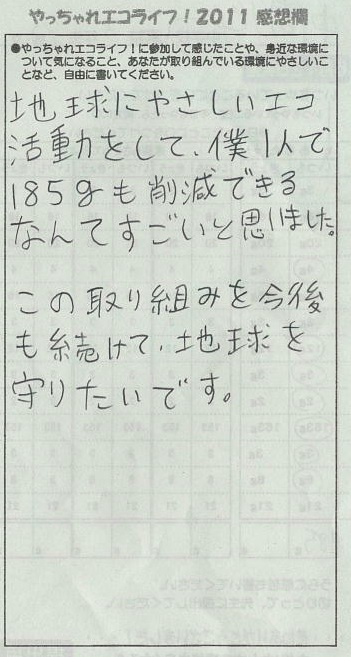 やっちゃれエコライフ！2011 感想欄
●やっちゃれエコライフ！に参加して感じたことや、身近な環境に
ついて気になること、あなたが取り組んでいる環境にやさしいこ
となど、自由に書いてください。
地球にやさしいエコ
活動をして、僕1人で
185gも削減できる
なんてすごいと思いました。
この取り組みを今後
も続けて、地球を
守りたいです。